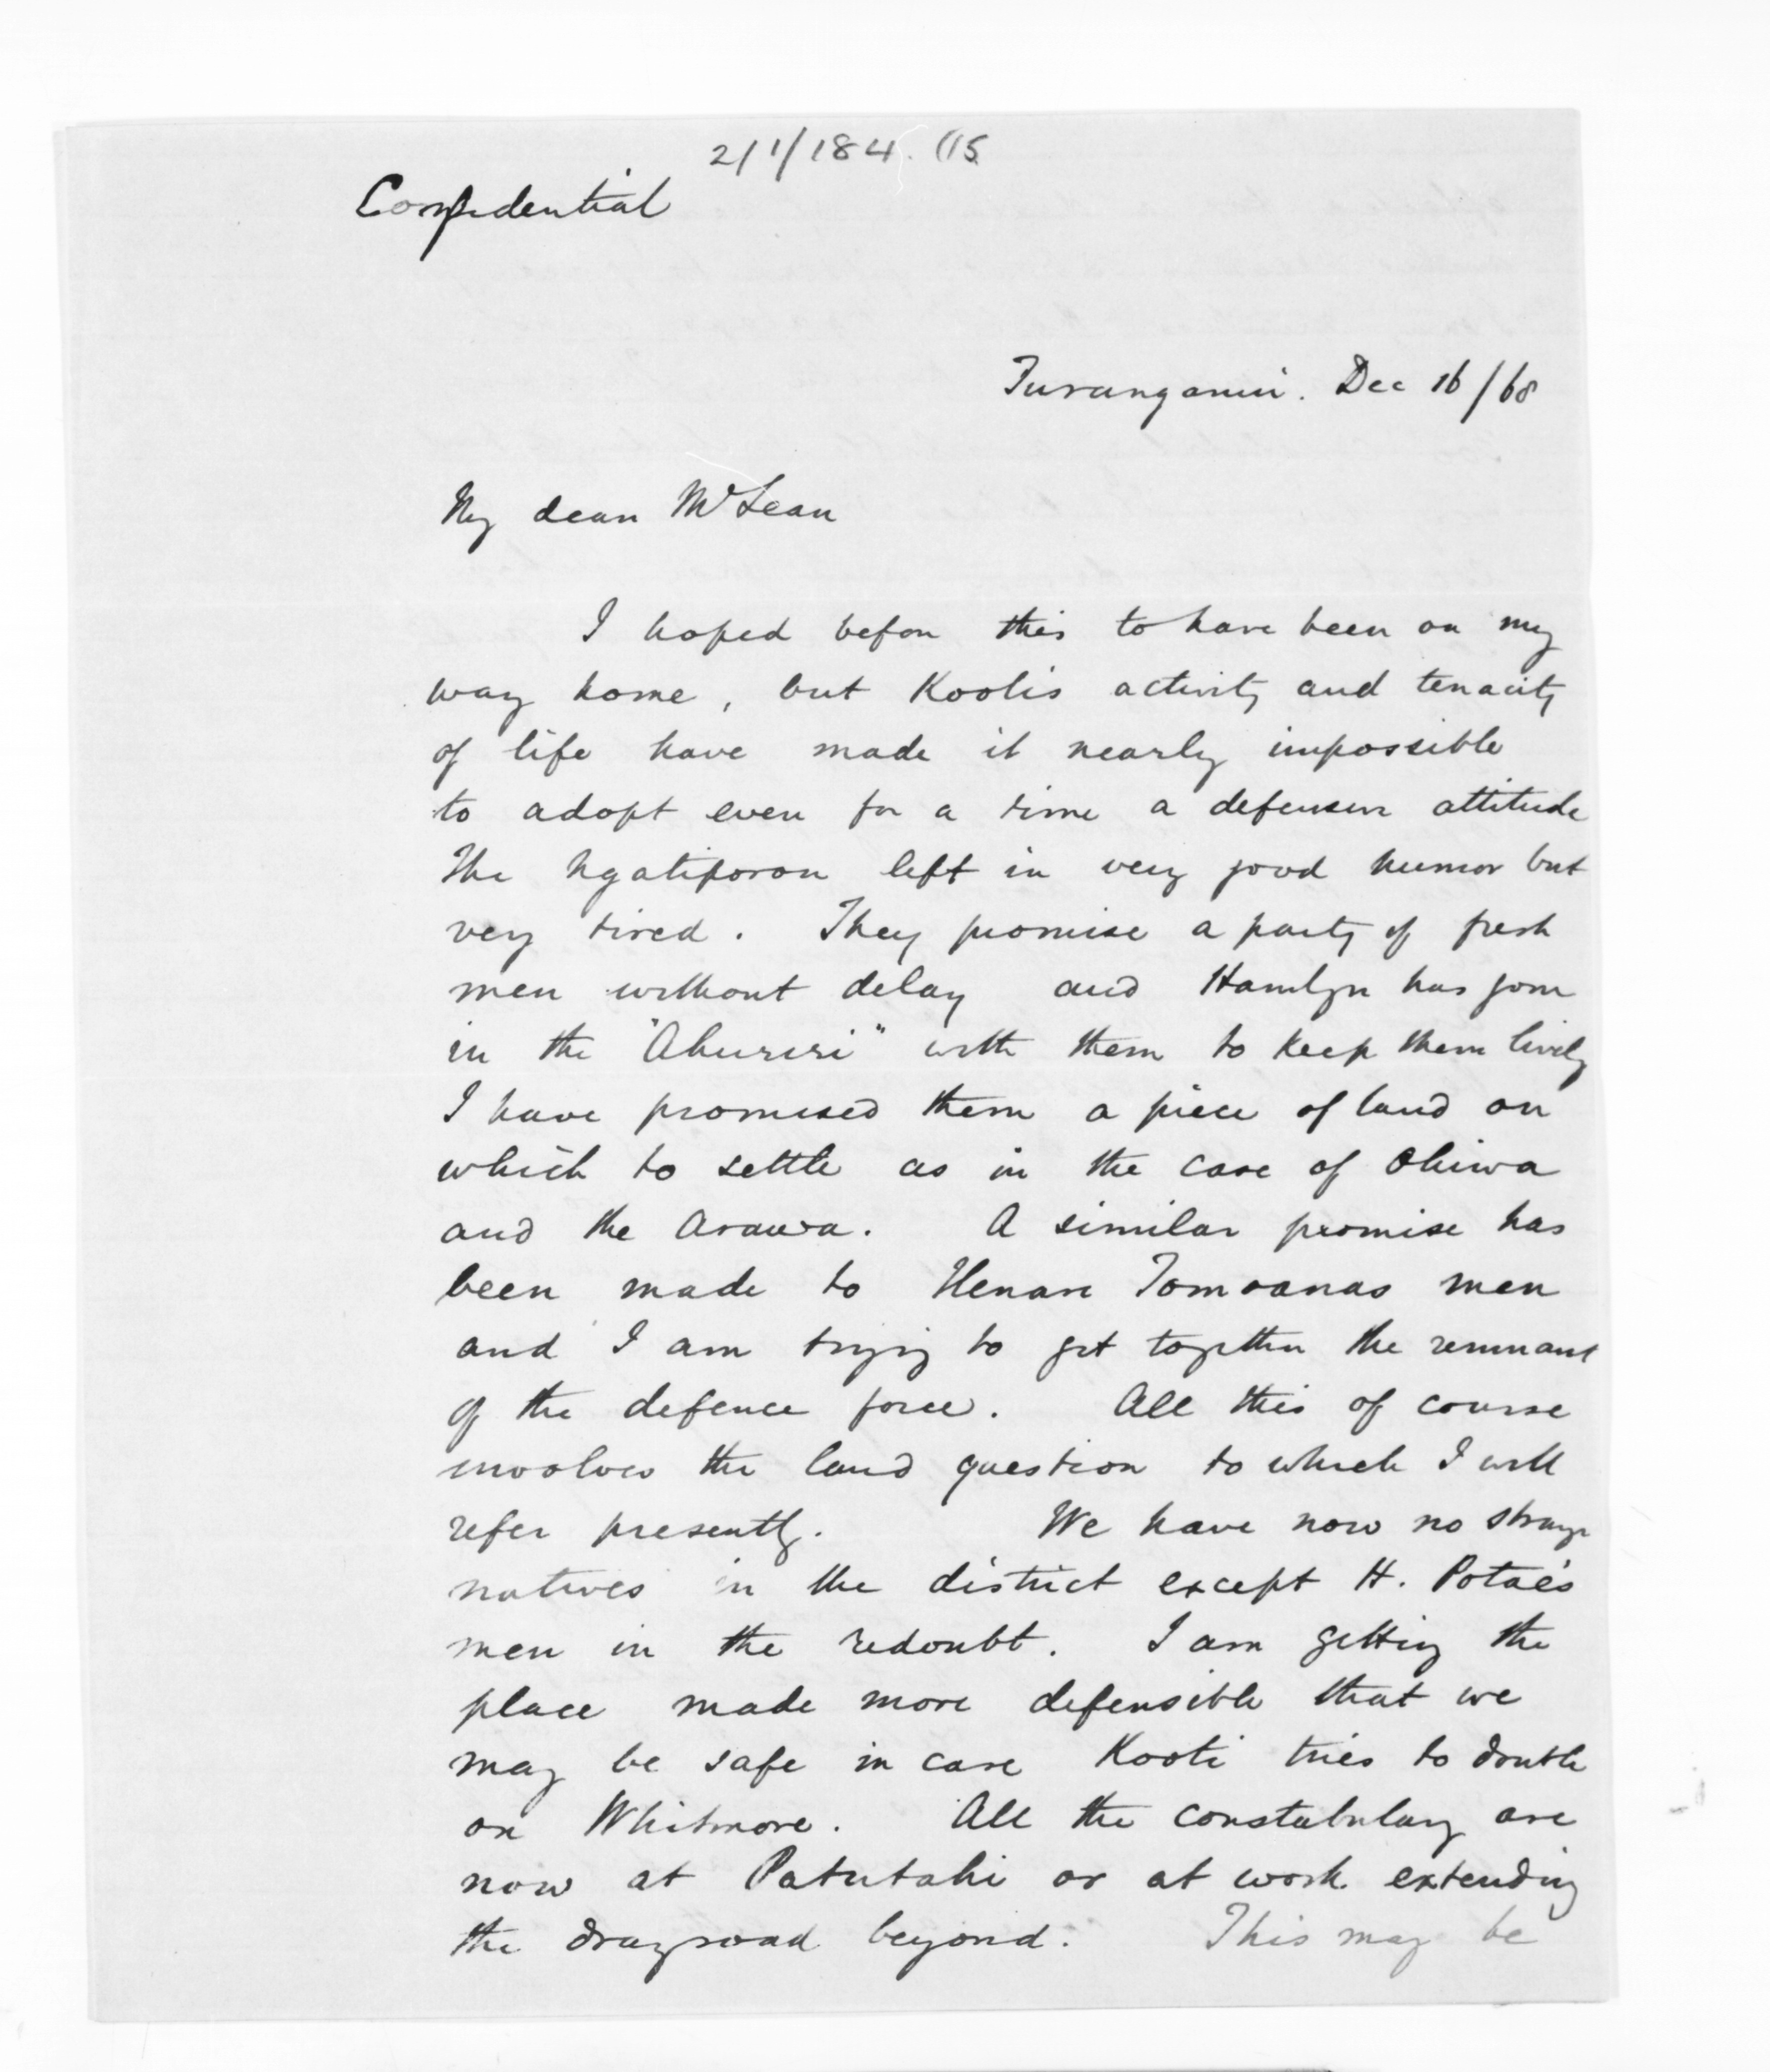 2/1/184. (15
Confidential
Turanganui. Dec 16/68
My dear McLean
I hoped before this to have been on my
way home, but Kooti's activity and tenacity
of life have made it nearly impossible
to adopt even for a time a defensive attitude
The Ngatiporou left in very good humor but
very tired. They promise a party of fresh
men without delay and Hamlyn has gone
in the "Ahuriri" with them to keep them lively
I have promised them a piece of land on
which to settle as in the case of Ohiwa
and the Arawa. A similar promise has
been made to Henare Tomoanas men
and I am trying to get together the remnant
of the defence force. All this of course
involves the land question to which I will
refer presently. We have now no strange
natives in the district except H. Potae's
men in the redoubt. I am getting the
place made more defensible that we
may be safe in case Kooti tries to double
on Whitmore. All the constabulary are
now at Patutahi or at work extending
the drayroad beyond. This may be